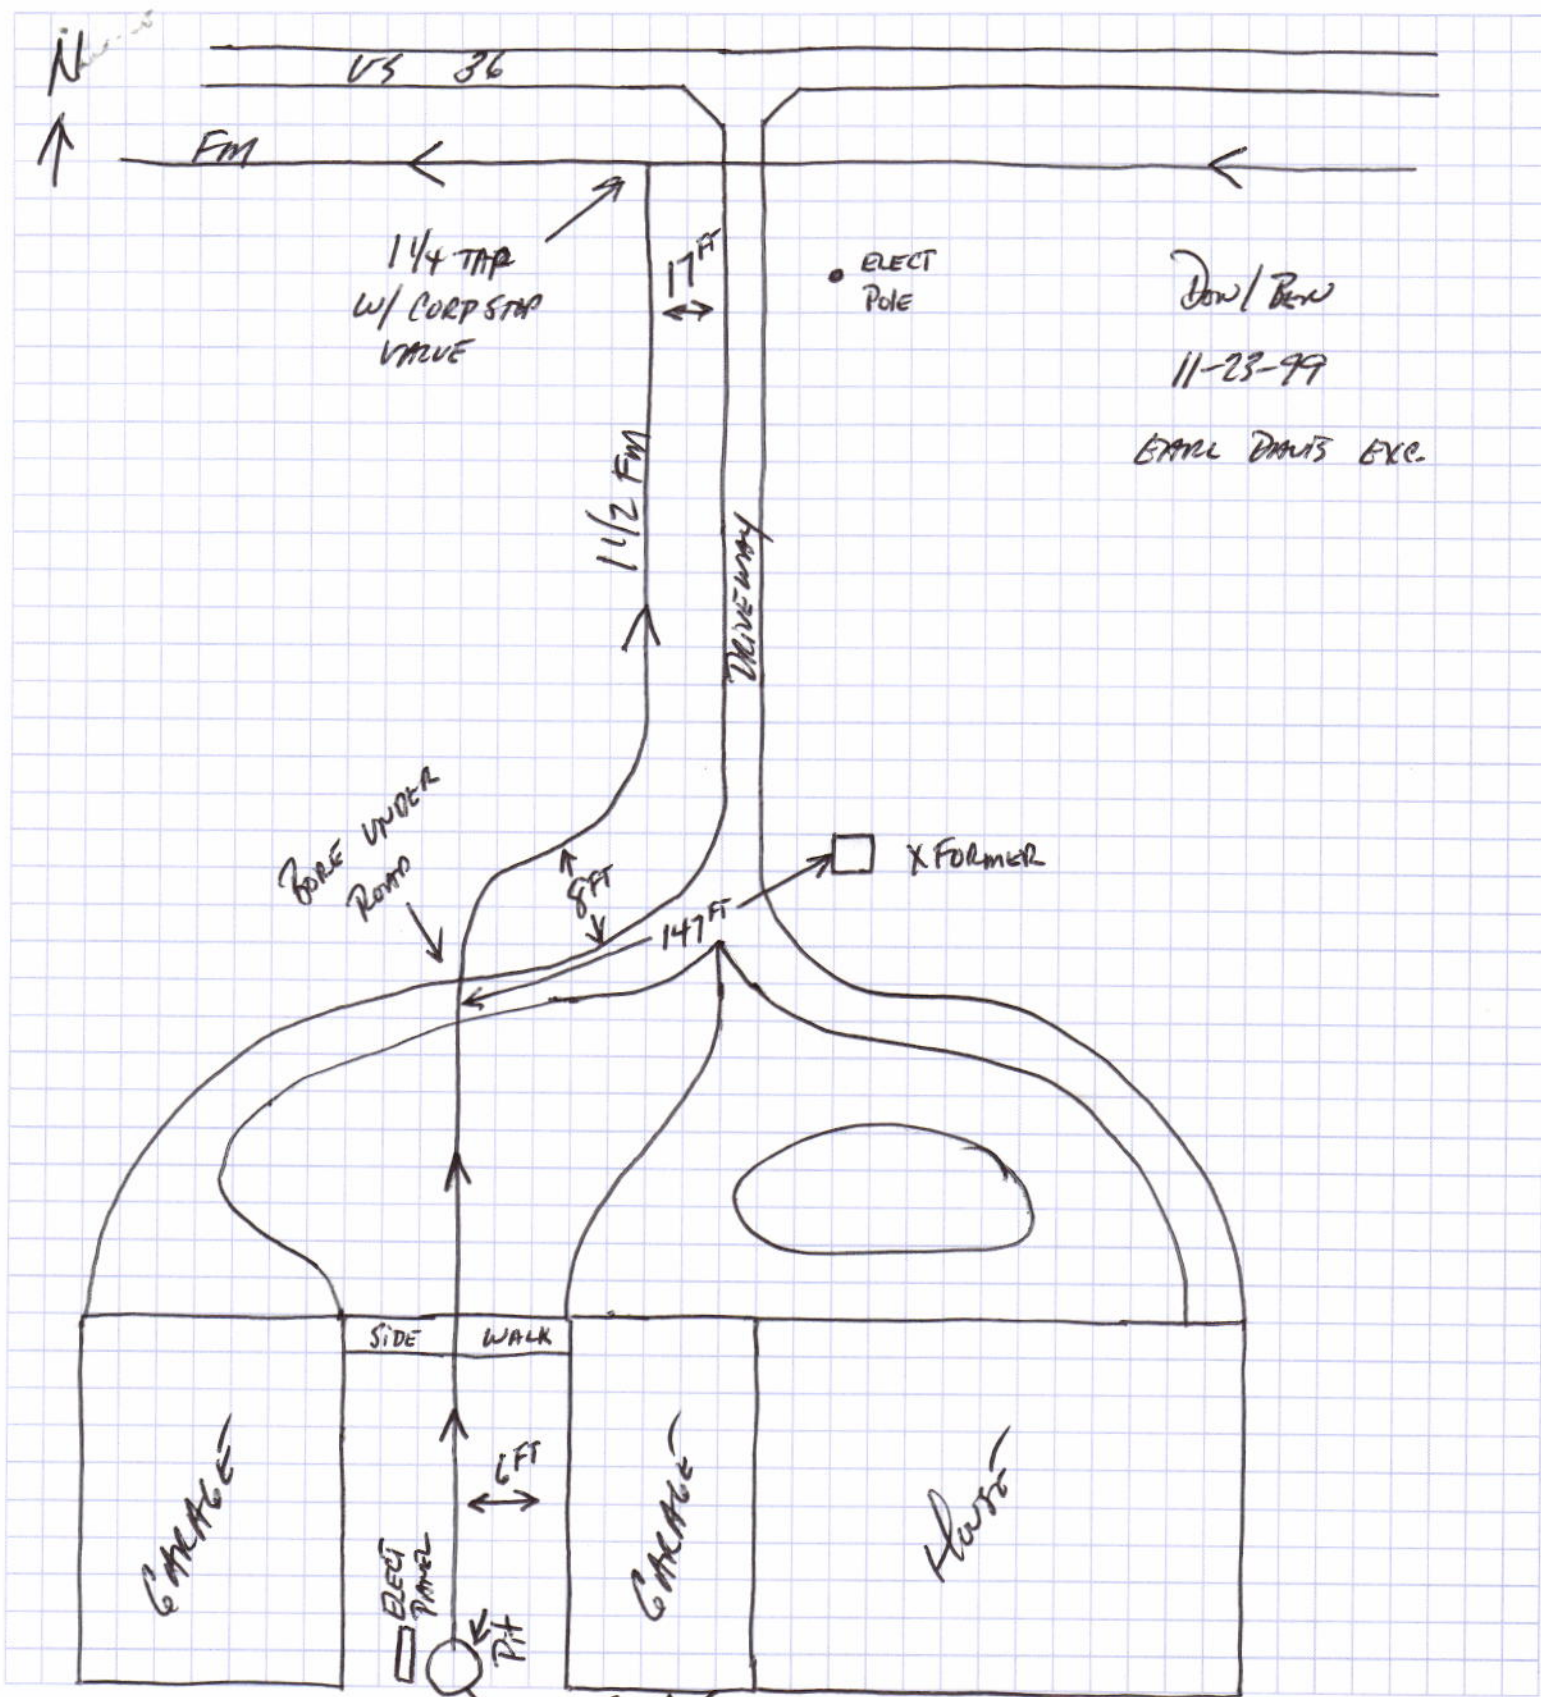 N
US 36
FM
1 1/4 TAP
W/ CORP STOP
VALVE
17 FT
ELECT
POLE
DON/BEN
11-23-99
EARL DAVIS EXC.
1 1/2 FM
DRIVEWAY
BORE UNDER
ROAD
8 FT
147 FT
X FORMER
SIDE WALK
6 FT
GARAGE
ELECT
PANEL
Pit
GARAGE
House